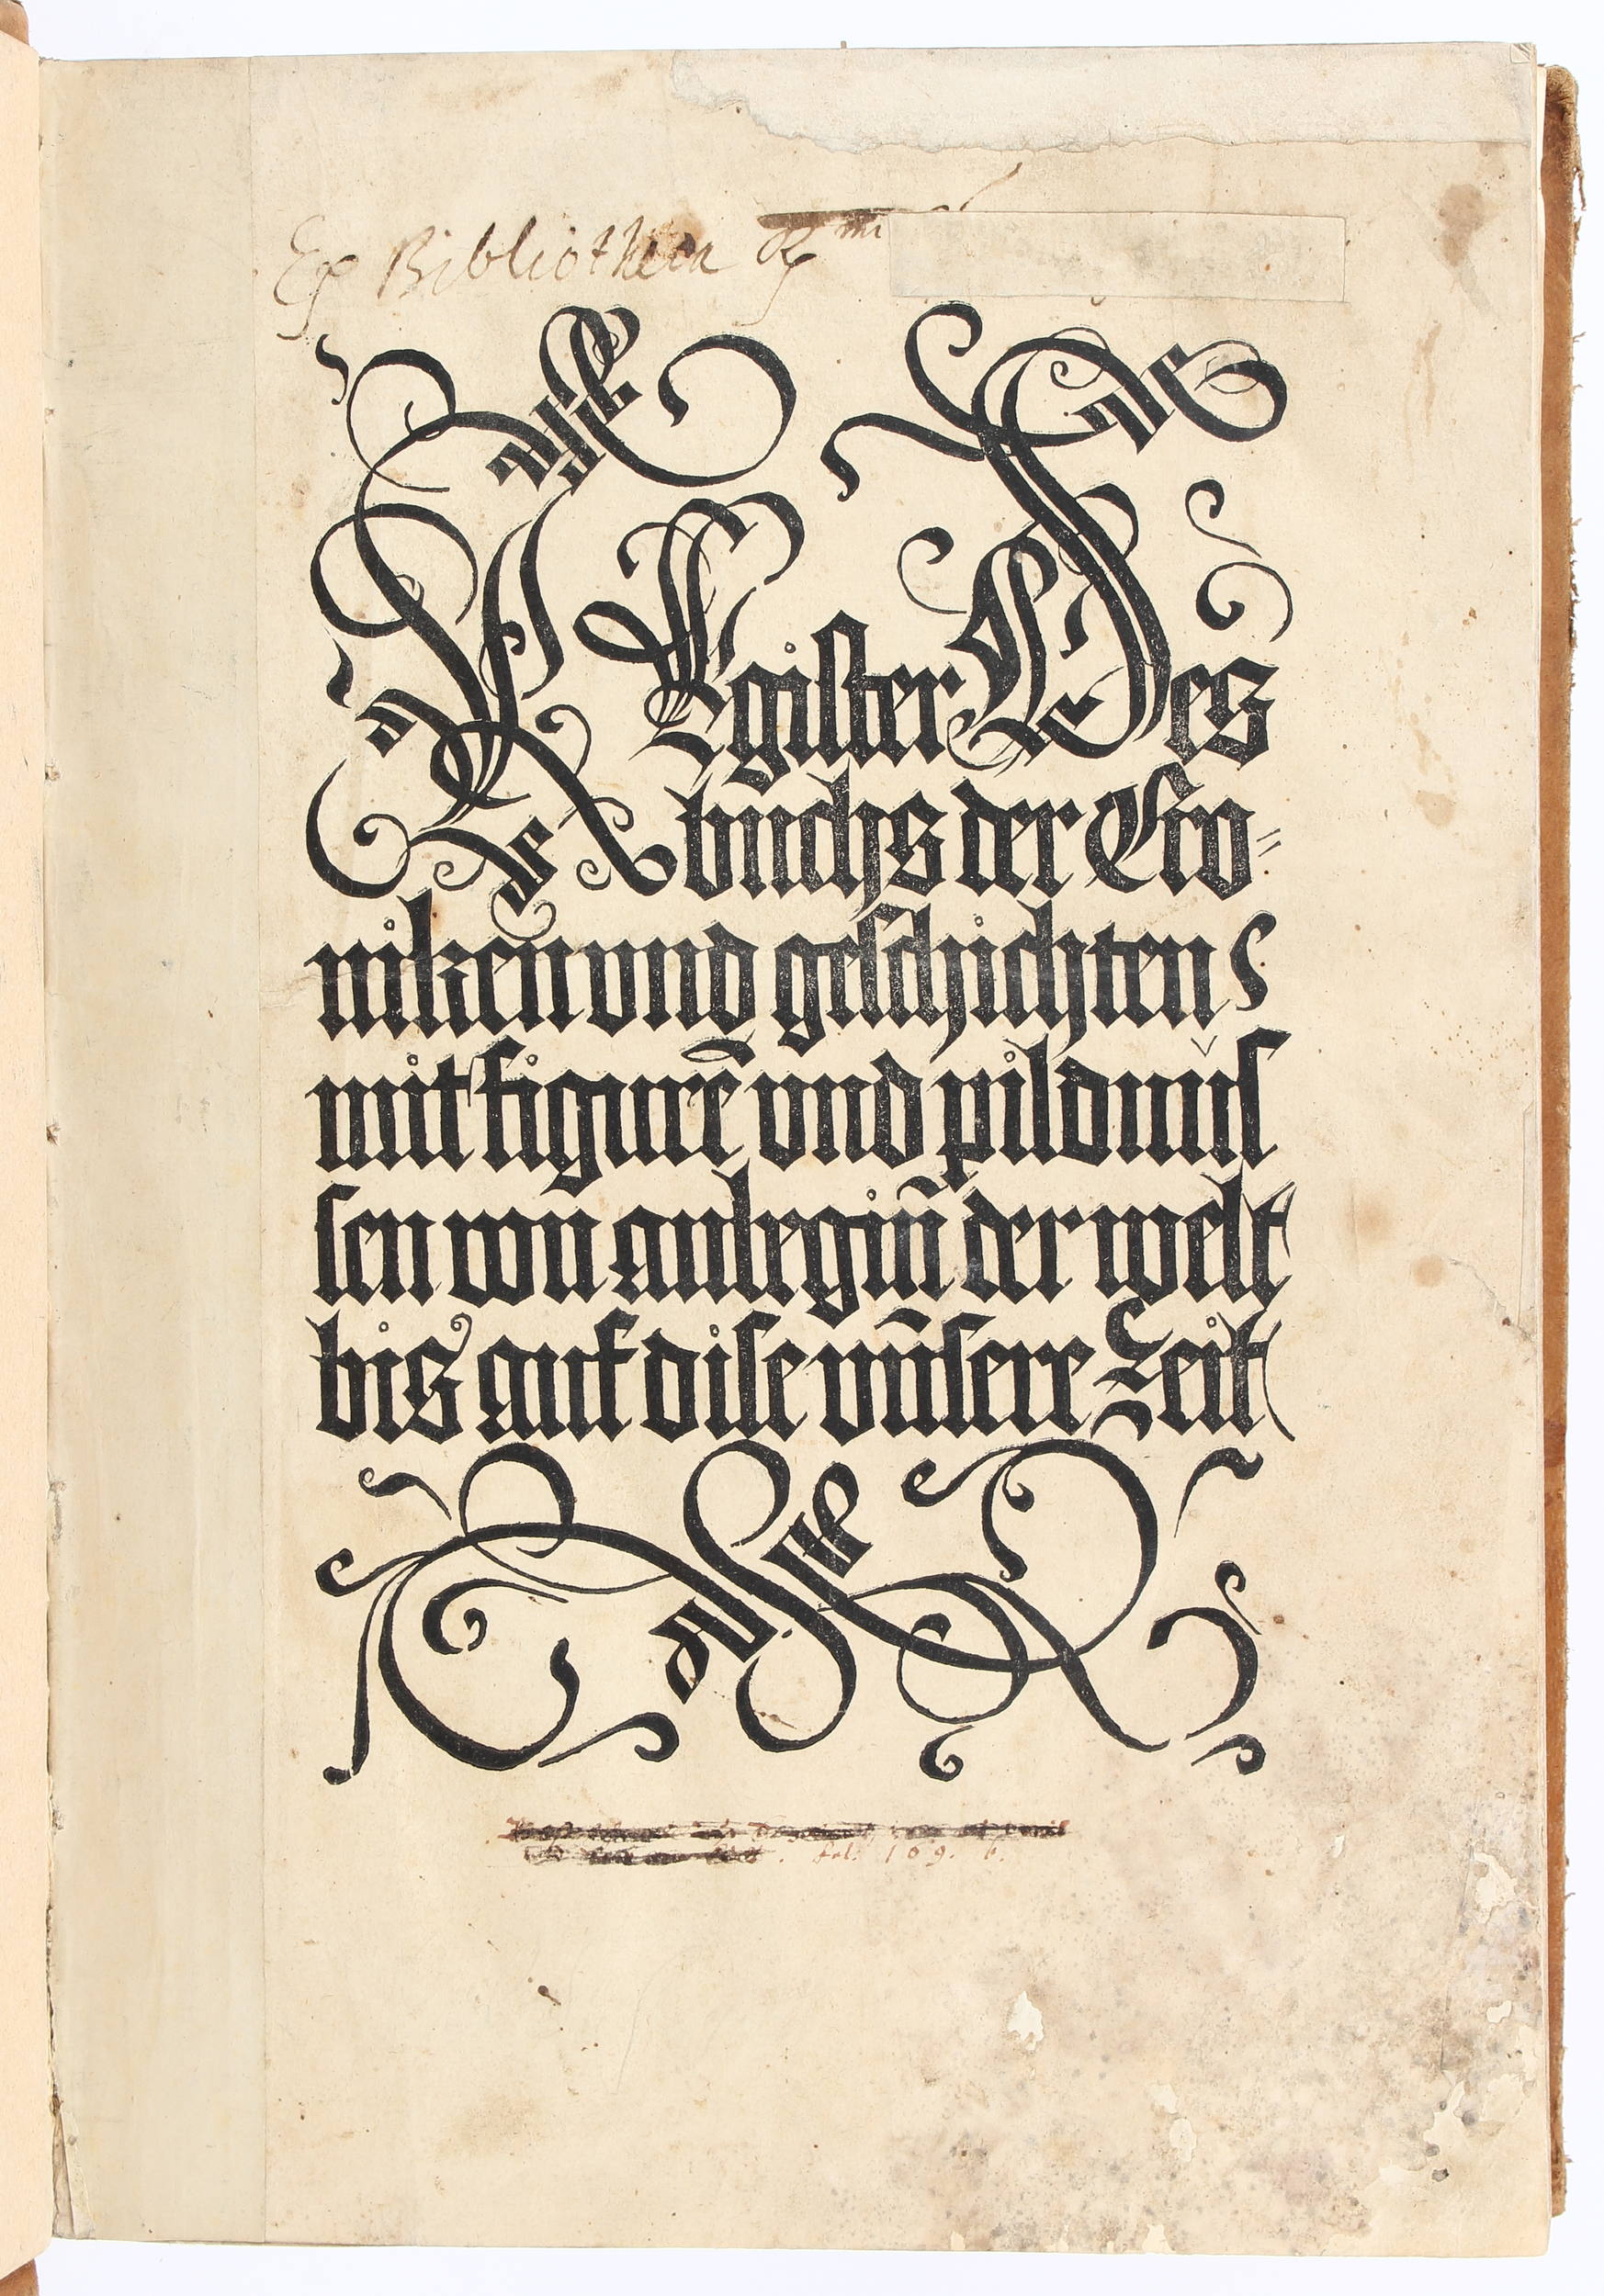 Ex Bibliotheca
REgister Des
buchs der Cro=
niken und geschichten
mit figurē und pildnüs
sen von anbegiñ der welt
bis auf dise unnsere Zeit
fol. 109. b.